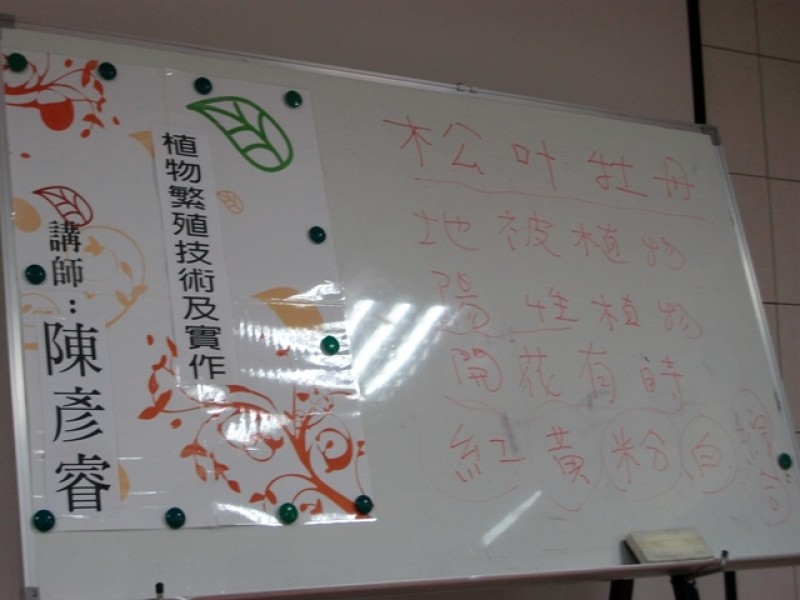 植物繁殖技術及實作
講師：陳彥睿
松叶牡丹
地被植物
陽性植物
開花有時
紅黃粉白